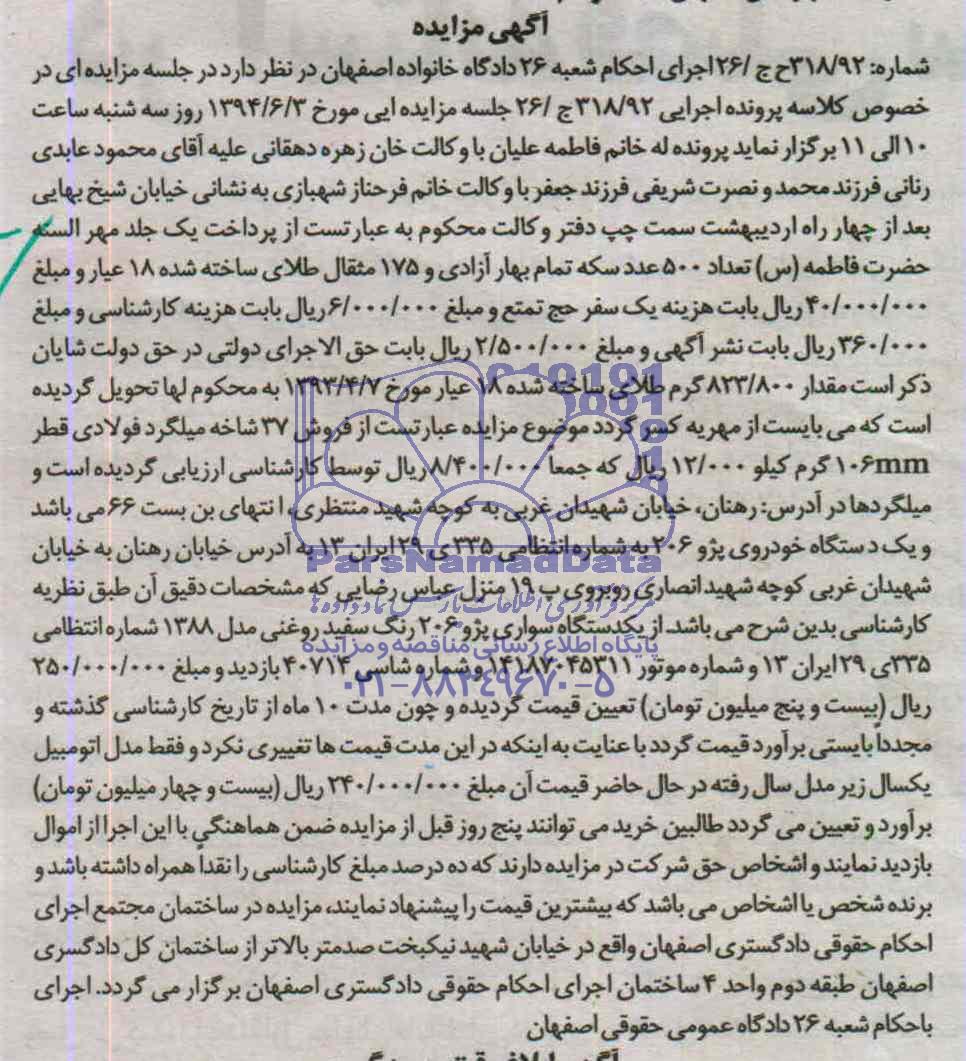 آگهی مزایده
شماره: ۳۱۸/۹۲ح ج /۲۶ اجرای احکام شعبه ۲۶ دادگاه خانواده اصفهان در نظر دارد در جلسه مزایده ای در
خصوص کلاسه پرونده اجرایی ۳۱۸/۹۲ ج /۲۶ جلسه مزایده ایی مورخ ۱۳۹۴/۶/۳ روز سه شنبه ساعت
۱۰ الی ۱۱ برگزار نماید پرونده له خانم فاطمه علیان با وکالت خان زهره دهقانی علیه آقای محمود عابدی
رنانی فرزند محمد و نصرت شریفی فرزند جعفر با وکالت خانم فرحناز شهبازی به نشانی خیابان شیخ بهایی
بعد از چهار راه اردیبهشت سمت چپ دفتر وکالت محکوم به عبارتست از پرداخت یک جلد مهر السنه
حضرت فاطمه (س) تعداد ۵۰۰ عدد سکه تمام بهار آزادی و ۱۷۵ مثقال طلای ساخته شده ۱۸ عیار و مبلغ
۴۰/۰۰۰/۰۰۰ ریال بابت هزینه یک سفر حج تمتع و مبلغ ۶/۰۰۰/۰۰۰ ریال بابت هزینه کارشناسی و مبلغ
۳۶۰/۰۰۰ ریال بابت نشر آگهی و مبلغ ۲/۵۰۰/۰۰۰ ریال بابت حق الاجرای دولتی در حق دولت شایان
ذکر است مقدار ۸۲۳/۸۰۰ گرم طلای ساخته شده ۱۸ عیار مورخ ۱۳۹۳/۴/۷ به محکوم لها تحویل گردیده
است که می بایست از مهریه کسر گردد موضوع مزایده عبارتست از فروش ۳۷ شاخه میلگرد فولادی قطر
۱۰۶mm گرم کیلو ۱۲/۰۰۰ ریال که جمعاً ۸/۴۰۰/۰۰۰ ریال توسط کارشناسی ارزیابی گردیده است و
میلگردها در آدرس: رهنان، خیابان شهیدان غربی به کوچه شهید منتظری، انتهای بن بست ۶۶ می باشد
و یک دستگاه خودروی پژو ۲۰۶ به شماره انتظامی ۳۳۵ ی ۲۹ ایران ۱۳ به آدرس خیابان رهنان به خیابان
شهیدان غربی کوچه شهید انصاری روبروی پ ۱۹ منزل عباس رضایی که مشخصات دقیق آن طبق نظریه
کارشناسی بدین شرح می باشد. از یکدستگاه سواری پژو ۲۰۶ رنگ سفید روغنی مدل ۱۳۸۸ شماره انتظامی
۳۳۵ی ۲۹ ایران ۱۳ و شماره موتور ۱۴۱۸۷۰۴۵۳۱۱ و شماره شاسی ۴۰۷۱۴ بازدید و مبلغ ۲۵۰/۰۰۰/۰۰۰
ریال (بیست و پنج میلیون تومان) تعیین قیمت گردیده و چون مدت ۱۰ ماه از تاریخ کارشناسی گذشته و
مجدداً بایستی برآورد قیمت گردد با عنایت به اینکه در این مدت قیمت ها تغییری نکرد و فقط مدل اتومبیل
یکسال زیر مدل سال رفته در حال حاضر قیمت آن مبلغ ۲۴۰/۰۰۰/۰۰۰ ریال (بیست و چهار میلیون تومان)
برآورد و تعیین می گردد طالبین خرید می توانند پنج روز قبل از مزایده ضمن هماهنگی با این اجرا از اموال
بازدید نمایند و اشخاص حق شرکت در مزایده دارند که ده درصد مبلغ کارشناسی را نقداً همراه داشته باشد و
برنده شخص یا اشخاص می باشد که بیشترین قیمت را پیشنهاد نمایند، مزایده در ساختمان مجتمع اجرای
احکام حقوقی دادگستری اصفهان واقع در خیابان شهید نیکبخت صدمتر بالاتر از ساختمان کل دادگستری
اصفهان طبقه دوم واحد ۴ ساختمان اجرای احکام حقوقی دادگستری اصفهان برگزار می گردد. اجرای
باحکام شعبه ۲۶ دادگاه عمومی حقوقی اصفهان
ParsNamadData
مرکز فرآوری اطلاعات پارس نماد داده ها
پایگاه اطلاع رسانی مناقصه و مزایده
۰۲۱-۸۸۳۴۹۶۷۰-۵